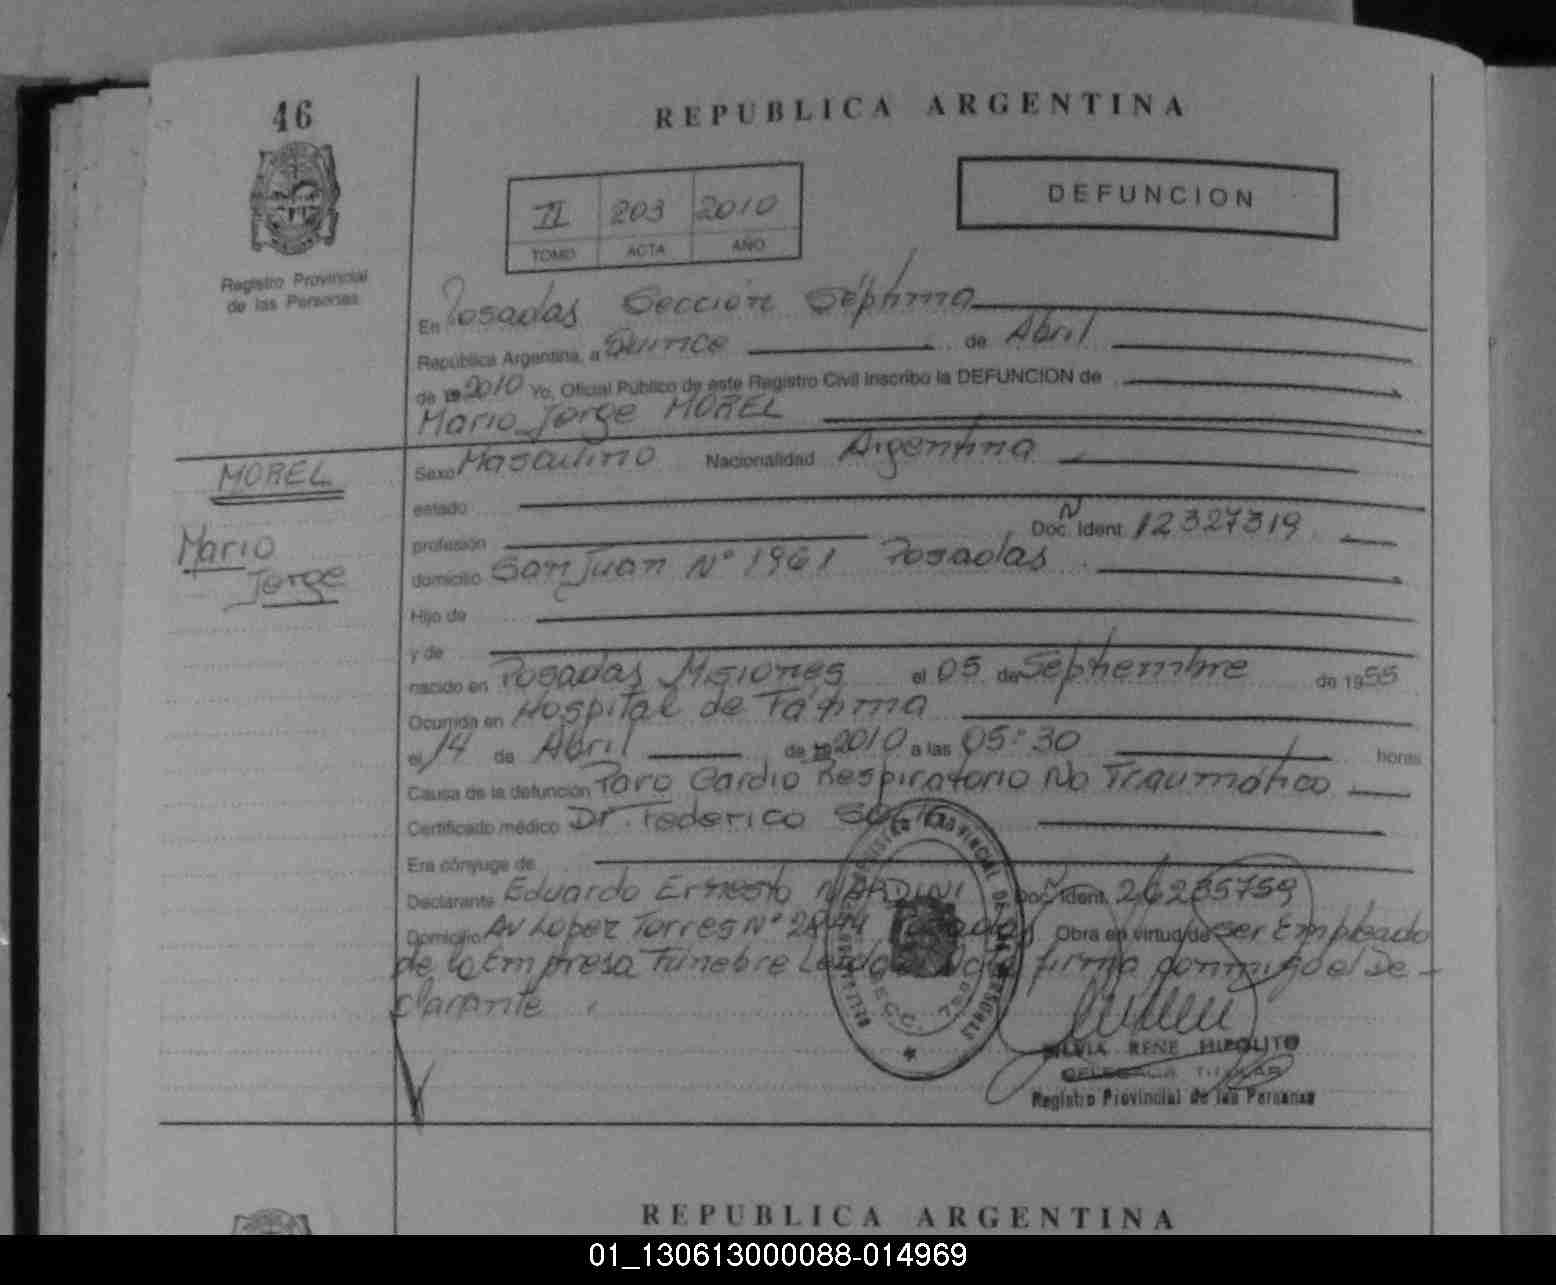 46
REPUBLICA ARGENTINA
II 203 2010
TOMO ACTA AÑO
DEFUNCION
Registro Provincial
de las Personas
En Posadas Sección Séptima
República Argentina, a Quince de Abril
de 19 2010 Yo, Oficial Público de este Registro Civil inscribo la DEFUNCION de
Mario Jorge MOREL
MOREL
Mario
Jorge
Sexo Masculino Nacionalidad Argentina
estado
profesión Doc. Ident. 12327319
domicilio San Juan Nº 1961 Posadas
Hijo de
y de
nacido en Posadas Misiones el 05 de Septiembre de 1955
Ocurrida en Hospital de Fátima
el 14 de Abril de 19 2010 a las 05:30 horas
Causa de la defunción Paro Cardio Respiratorio No Traumático
Certificado médico Dr. Federico
Era cónyuge de
Declarante Eduardo Ernesto NARDINI Doc. Ident. 26235759
Domicilio Av Lopez Torres Nº 2844 Posadas Obra en virtud de ser Empleado
de la Empresa Fúnebre Leída el Acta firma conmigo el De-
clarante.
REGISTRO PROVINCIAL DE LAS PERSONAS
SECC. 7
SILVIA RENE HIPOLITO
DELEGADA TITULAR
Registro Provincial de las Personas
REPUBLICA ARGENTINA
01_130613000088-014969